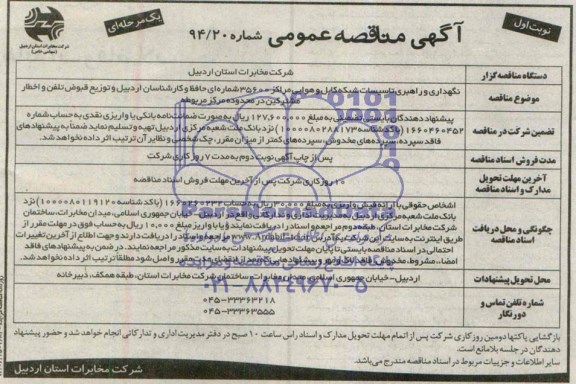 نوبت اول
آگهی مناقصه عمومی شماره ۹۴/۲۰
یک مرحله‌ای
شرکت مخابرات استان اردبیل
(سهامی خاص)
دستگاه مناقصه گزار
شرکت مخابرات استان اردبیل
موضوع مناقصه
نگهداری و راهبری تاسیسات شبکه کابل و هوایی مراکز ۳۵۶۰۰ شماره‌ای حافظ و کارشناسان اردبیل و توزیع قبوض تلفن و اخطار
مشترکین در محدوده مرکز مربوطه
تضمین شرکت در مناقصه
پیشنهاد دهندگان بایستی تضمینی به مبلغ ۱۲۷,۶۰۰,۰۰۰ ریال به صورت ضمانت نامه بانکی یا واریزی نقدی به حساب شماره
۱۶۶۰۴۶۰۴۵۲ (با کد شناسه ۱۰۰۰۰۸۰۲۸۸۱۷۳) نزد بانک ملت شعبه مرکزی اردبیل تهیه و تسلیم نماید ضمناً به پیشنهادهای
فاقد سپرده، سپرده‌های مخدوش، سپرده‌های کمتر از میزان مقرر، چک شخصی و نظایر آن ترتیب اثر داده نخواهد شد.
مدت فروش اسناد مناقصه
پس از چاپ آگهی نوبت دوم به مدت ۷ روز کاری شرکت
آخرین مهلت تحویل
مدارک و اسناد مناقصه
۱۰ روز کاری شرکت پس از آخرین مهلت فروش اسناد مناقصه
چگونگی و محل دریافت
اسناد مناقصه
اشخاص حقوقی با ارائه فیش واریزی به مبلغ ۳۰۰,۰۰۰ ریال به حساب (با کد شناسه ۱۰۰۰۰۸۰۱۱۹۱۲۰) نزد
بانک ملت شعبه مرکزی اردبیل به مدیریت اداری و تدارکاتی واقع در اردبیل - خیابان جمهوری اسلامی، میدان مخابرات، ساختمان
شرکت مخابرات استان، طبقه دوم مراجعه و اسناد را دریافت نمایند و یا با واریز مبلغ ریال به حساب فوق در مهلت مقرر از
طریق اینترنت به سایت این شرکت به آدرس مراجعه و اسناد را دریافت دارند و جهت اطلاع از آخرین تغییرات
احتمالی در اسناد مناقصه بایستی تا پایان مهلت تحویل پیشنهادات به سایت مذکور مراجعه نمایند. در ضمن به پیشنهادهای فاقد
امضاء، مشروط، مخدوش، فاقد و پیشنهادهایی که بعد از انقضای مدت مقرر واصل شود مطلقاً ترتیب اثر داده نخواهد شد.
محل تحویل پیشنهادات
اردبیل - خیابان جمهوری اسلامی، میدان مخابرات، ساختمان شرکت مخابرات استان، طبقه همکف، دبیرخانه
شماره تلفن تماس و
دورنگار
۰۴۵-۳۳۳۶۳۲۱۸
۰۴۵-۳۳۳۶۳۵۵۵
۰۲۱-۸۸۳۴۹۶۷۰-۵
بازگشایی پاکتها دومین روز کاری شرکت پس از اتمام مهلت تحویل مدارک و اسناد راس ساعت ۱۰ صبح در دفتر مدیریت اداری و تدارکاتی انجام خواهد شد و حضور پیشنهاد
دهندگان در جلسه بلامانع است.
سایر اطلاعات و جزییات مربوط در اسناد مناقصه مندرج می‌باشد.
شرکت مخابرات استان اردبیل